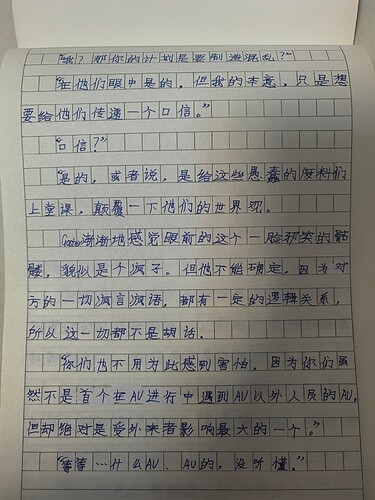 "哦？那你的计划是要制造混乱？"
"在他们眼中是的，但我的本意，只是想
要给他们传递一个口信。"
"口信？"
"是的，或者说，是给这些愚蠢的废料们
上堂课，颠覆一下他们的世界观。
渐渐地感觉眼前的这个一脸邪笑的骷
髅，貌似是个疯子。但他不能确定，因为对
方的一切疯言疯语，都有一定的逻辑关系，
所以这一切都不是胡话。
"你们也不用为此感到害怕，因为你们虽
然不是首个在AU进行中遇到AU以外人员的AU，
但却绝对是受外来者影响最大的一个。"
"等等…什么AU、AU的，没听懂。"